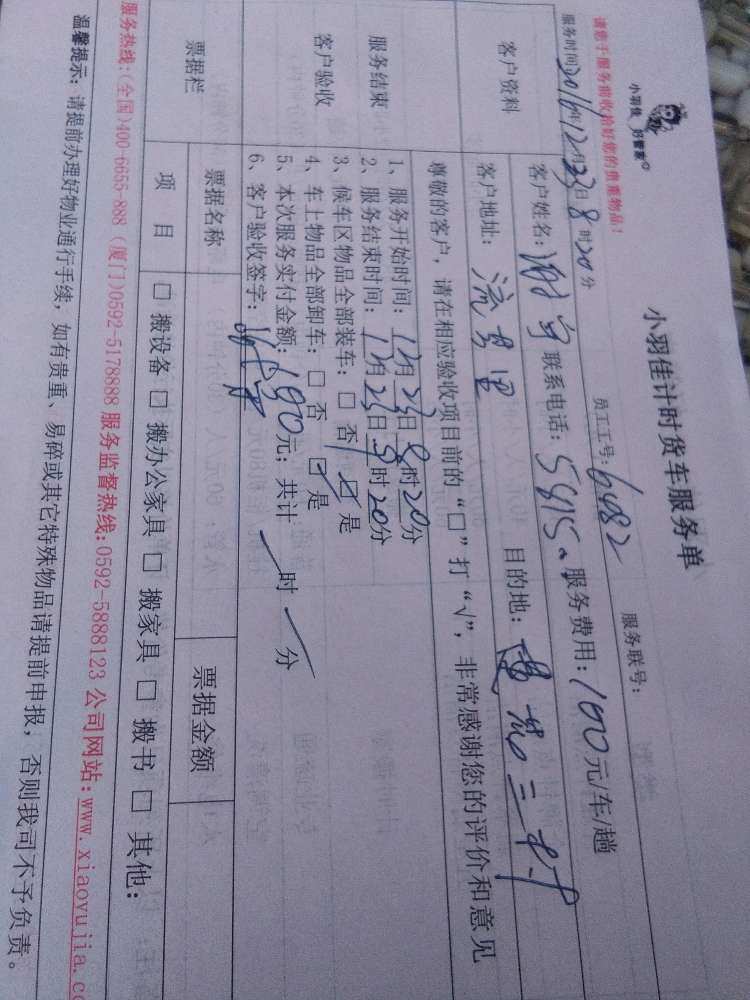 小羽佳 好管家
小羽佳计时货车服务单
请您于服务前收拾好您的贵重物品!
员工工号:6482 服务联号:
服务时间2016年12月23日8时20分
客户资料
客户姓名: 联系电话: 服务费用:100元/车/趟
客户地址: 目的地:
服务结束
客户验收
尊敬的客户,请在相应验收项目前的“□”打“√”,非常感谢您的评价和意见
1、服务开始时间:12月23日8时20分
2、服务结束时间:12月23日9时20分
3、候车区物品全部装车:□ 否 ☑ 是
4、车上物品全部卸车:□ 否 ☑ 是
5、本次服务实付金额:190元;共计 时 分
6、客户验收签字:
票据栏
票据名称 票据金额
项 目 □ 搬设备 □ 搬办公家具 □ 搬家具 □ 搬书 □ 其他:
服务热线:(全国)400-6655-888 (厦门)0592-5178888 服务监督热线:0592-5888123 公司网站:www.xiaoyujia.co
温馨提示:请提前办理好物业通行手续,如有贵重、易碎或其它特殊物品请提前申报,否则我司不予负责。